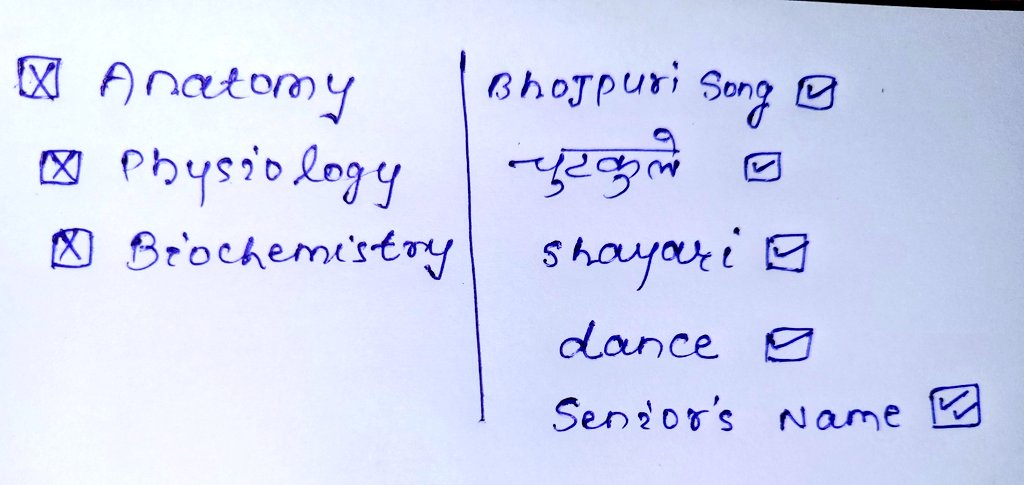 Anatomy
Physiology
Biochemistry
Bhojpuri Song
चुटकुले
shayari
dance
Senior's Name